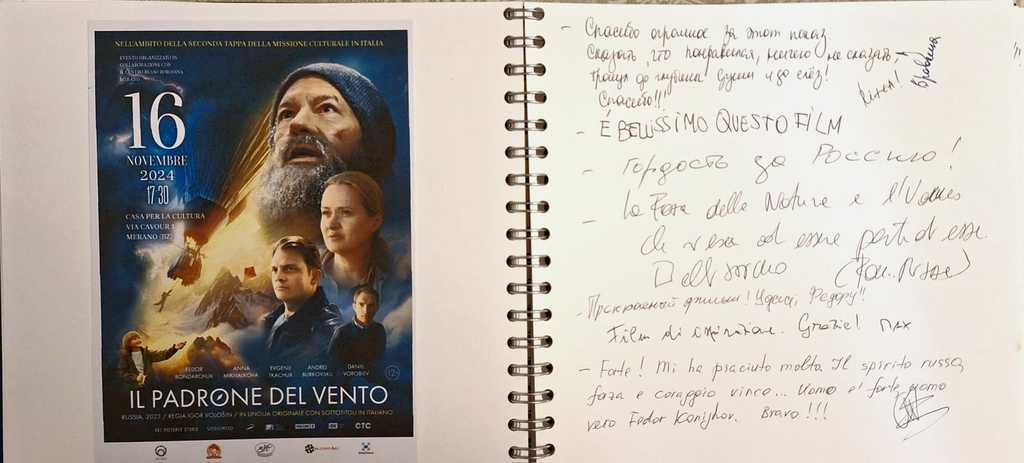 NELL'AMBITO DELLA SECONDA TAPPA DELLA MISSIONE CULTURALE IN ITALIA
EVENTO ORGANIZZATO IN
COLLABORAZIONE CON
IL CENTRO RUSSO BORODINA
MERANO
16
NOVEMBRE
2024
17:30
CASA PER LA CULTURA
VIA CAVOUR 1
MERANO (BZ)
FEDOR BONDARCHUK
ANNA MIKHALKOVA
EVGENII TKACHUK
ANDREI BURKOVSKII
DANIIL VOROBEV
12+
IL PADRONE DEL VENTO
RUSSIA, 2023 / REGIA IGOR VOLOŠIN / IN LINGUA ORIGINALE CON SOTTOTITOLI IN ITALIANO
СТС
- Спасибо огромное за этот показ.
Сказать, что понравился, ничего не сказать!
Тронул до глубины души и до слёз!
Спасибо!!!
- É BELLISSIMO QUESTO FILM
- Гордость за Россию!
- La Forza della Natura e l'Uomo
che riesce ad essere parte di essa
- Прекрасный фильм! Удачи, Федору!!
Film di ispirazione. Grazie! Max
- Forte! Mi ha piaciuto molto. Il spirito russo,
forza e coraggio vince... Uomo e' forte, uomo
vero Fedor Konjuhov. Bravo!!!